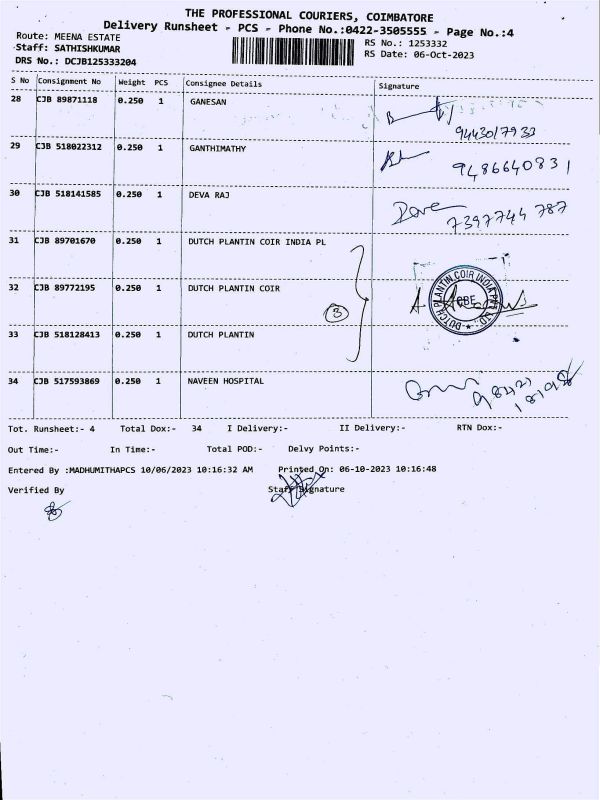 THE PROFESSIONAL COURIERS, COIMBATORE
Delivery Runsheet - PCS - Phone No.:0422-3505555 - Page No.:4
Route: MEENA ESTATE
RS No.: 1253332
Staff: SATHISHKUMAR
RS Date: 06-Oct-2023
DRS No.: DCJB125333204
S No Consignment No Weight PCS Consignee Details Signature
28 CJB 89871118 0.250 1 GANESAN
9443017933
29 CJB 518022312 0.250 1 GANTHIMATHY
9486640831
30 CJB 518141585 0.250 1 DEVA RAJ
7397744 787
31 CJB 89701670 0.250 1 DUTCH PLANTIN COIR INDIA PL
32 CJB 89772195 0.250 1 DUTCH PLANTIN COIR
3
DUTCH PLANTIN COIR INDIA PVT. LTD.
CBE
33 CJB 518128413 0.250 1 DUTCH PLANTIN
34 CJB 517593869 0.250 1 NAVEEN HOSPITAL
Tot. Runsheet:- 4 Total Dox:- 34 I Delivery:- II Delivery:- RTN Dox:-
Out Time:- In Time:- Total POD:- Delvy Points:-
Entered By :MADHUMITHAPCS 10/06/2023 10:16:32 AM Printed On: 06-10-2023 10:16:48
Verified By Staff Signature